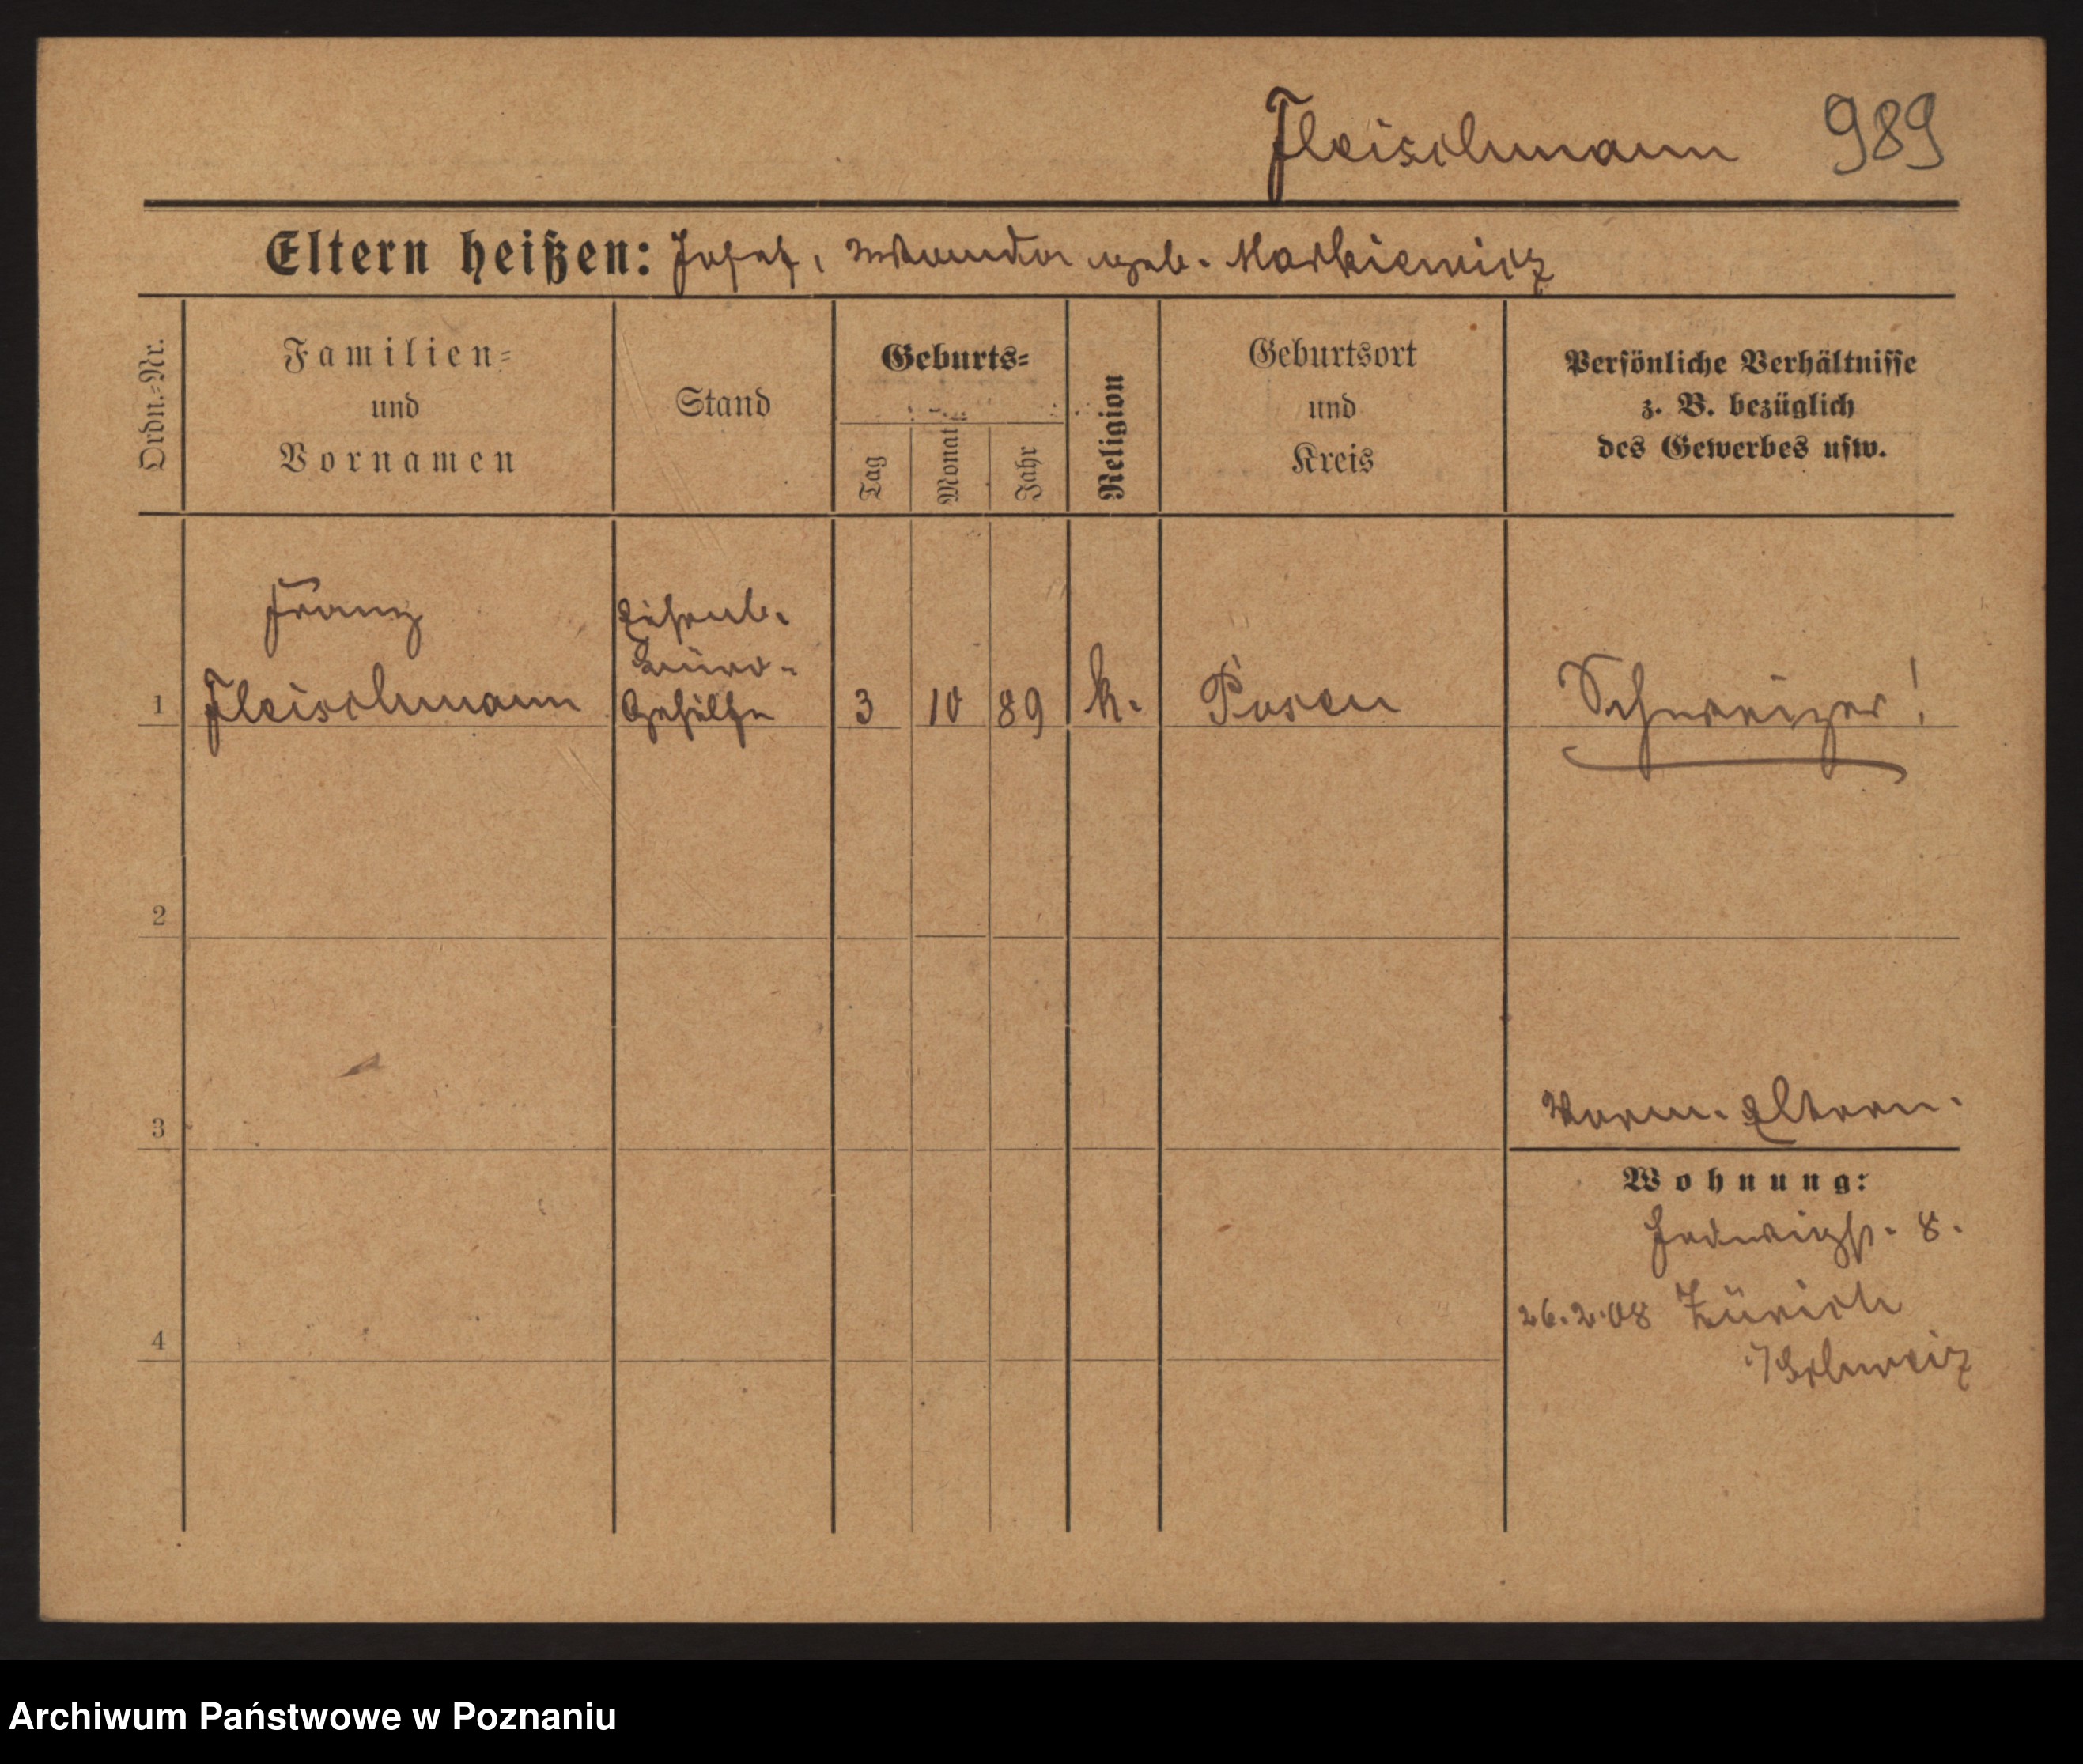 Fleischmann 989
Eltern heißen: Josef, geb. Markiewicz
Ordn.-Nr.
Familien-
und
Vornamen
Stand
Geburts-
Tag
Monat
Jahr
Religion
Geburtsort
und
Kreis
Persönliche Verhältnisse
z. B. bezüglich
des Gewerbes usw.
Franz
Eisenb.
Büro-
1 Fleischmann Gehülfe 3 10 89 k. Posen Schweizer!
2
3
Vorm. Eltern.
Wohnung:
Hedwigst. 8.
26.2.08 Zürich
4
i/Schweiz
Archiwum Państwowe w Poznaniu